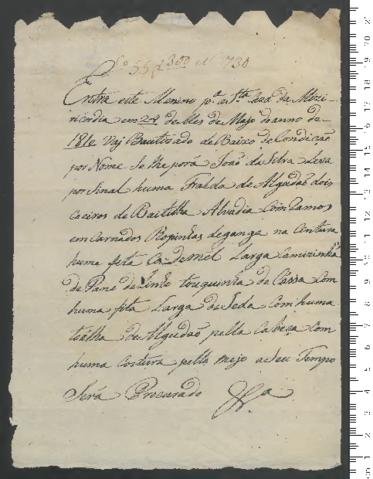 Entra este Menino pª a Stª Caza da Mizi-
ricordia em 29 do Mes de Majo do anno de
1810 Vaj Bautizado de Baixo de Condição
por Nome Se lhe porá João da Silva Leva
por Sinal huma Fralda de Algudão dois
Coeiros de Baitilha Alvadia Com Ramos
emcarnados Ropinhas de ganga na Centura
huma fita Larga Camizinha
de Pano de Linho touquinha de Cassa Com
huma fita Larga de Seda Com huma
toalha de Algudão pella Cabeça Com
huma Costura pello mejo a Seu Tempo
Será Procurado